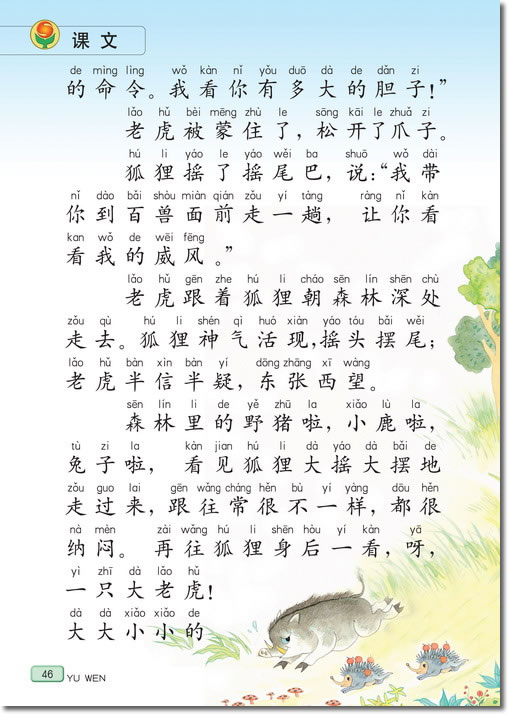 课文
de mìng lìng wǒ kàn nǐ yǒu duō dà de dǎn zi
的命令。我看你有多大的胆子!”
lǎo hǔ bèi mēng zhù le sōng kāi le zhuǎ zi
老虎被蒙住了，松开了爪子。
hú li yáo le yáo wěi ba shuō wǒ dài
狐狸摇了摇尾巴，说:“我带
nǐ dào bǎi shòu miàn qián zǒu yí tàng ràng nǐ kàn
你到百兽面前走一趟，让你看
kan wǒ de wēi fēng
看我的威风。”
lǎo hǔ gēn zhe hú li cháo sēn lín shēn chù
老虎跟着狐狸朝森林深处
zǒu qù hú li shén qì huó xiàn yáo tóu bǎi wěi
走去。狐狸神气活现,摇头摆尾;
lǎo hǔ bàn xìn bàn yí dōng zhāng xī wàng
老虎半信半疑，东张西望。
sēn lín li de yě zhū la xiǎo lù la
森林里的野猪啦，小鹿啦，
tù zi la kàn jian hú li dà yáo dà bǎi de
兔子啦，看见狐狸大摇大摆地
zǒu guo lai gēn wǎng cháng hěn bù yí yàng dōu hěn
走过来，跟往常很不一样，都很
nà mèn zài wǎng hú li shēn hòu yí kàn yā
纳闷。再往狐狸身后一看，呀，
yì zhī dà lǎo hǔ
一只大老虎!
dà dà xiǎo xiǎo de
大大小小的
46 YU WEN